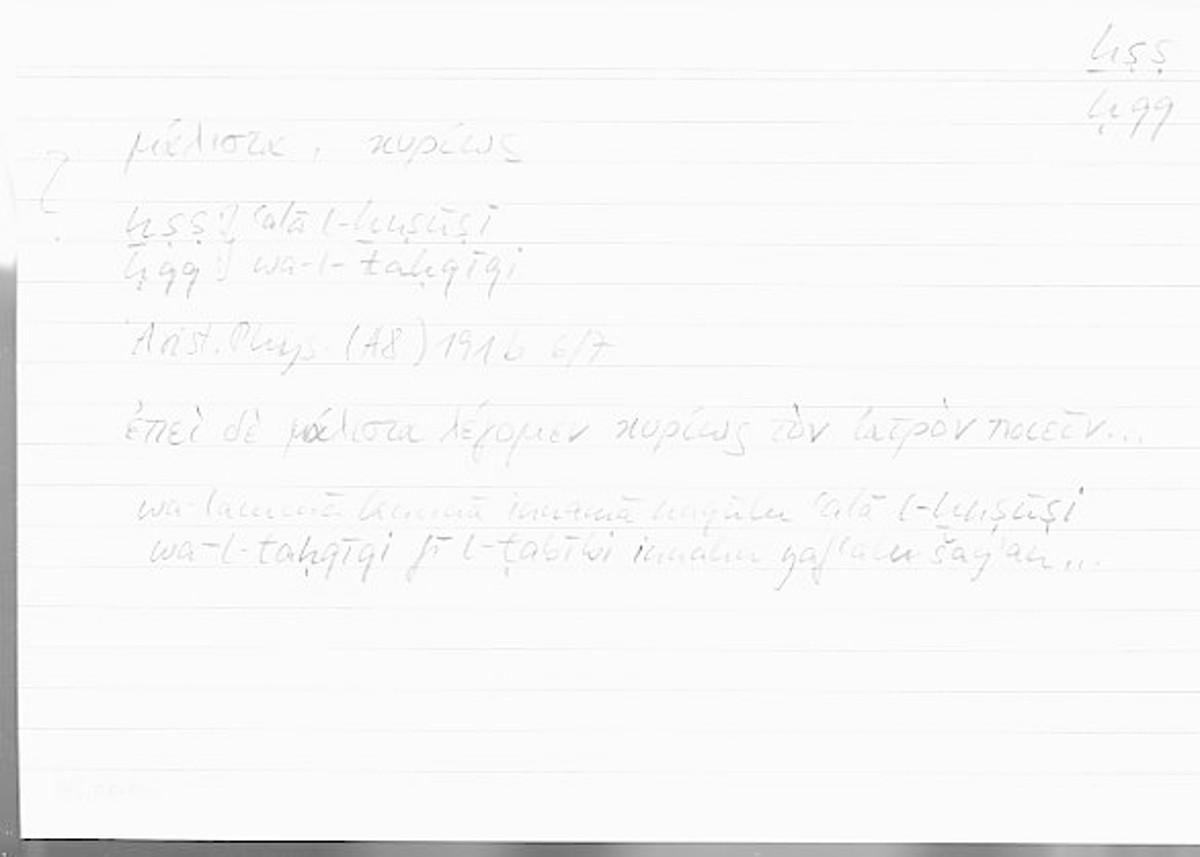 ḫṣṣ
ḥqq
μάλιστα, κυρίως
?
ḫṣṣ } ʿalā l-ḫuṣūṣi
ḥqq } wa-l-taḥqīqi
Arist. Phys. (A8) 191b 6/7
ἐπεὶ δὲ μάλιστα λέγομεν κυρίως τὸν ἰατρὸν ποιεῖν...
wa-lammā kunnā innamā naqūlu ʿalā l-ḫuṣūṣi
wa-l-taḥqīqi fī l-ṭabībi innahu yafʿalu šayʾan...